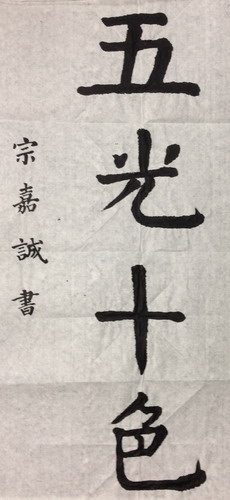 五光十色
宗嘉誠書